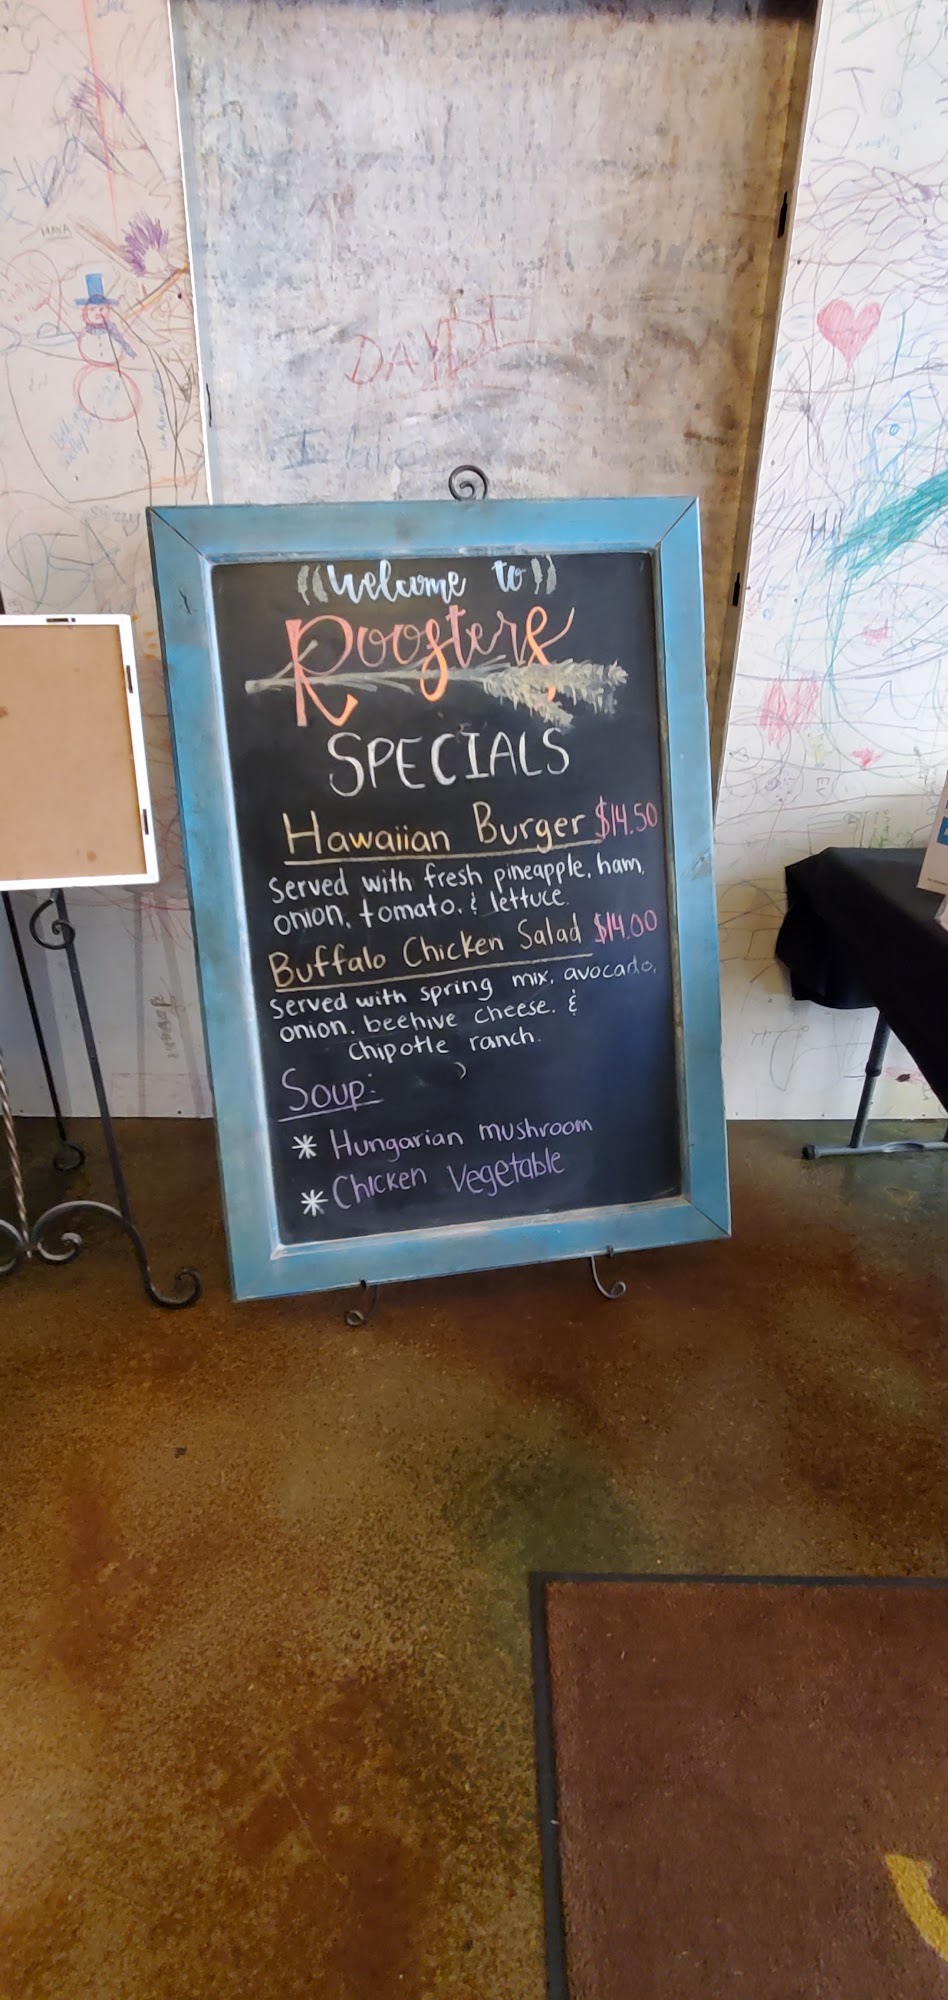 DAVDE
Welcome to
Roosters
SPECIALS
Hawaiian Burger $14.50
Served with fresh pineapple, ham,
onion, tomato, & lettuce.
Buffalo Chicken Salad $14.00
Served with spring mix, avocado,
onion, beehive cheese, &
chipotle ranch.
Soup:
* Hungarian mushroom
* Chicken Vegetable